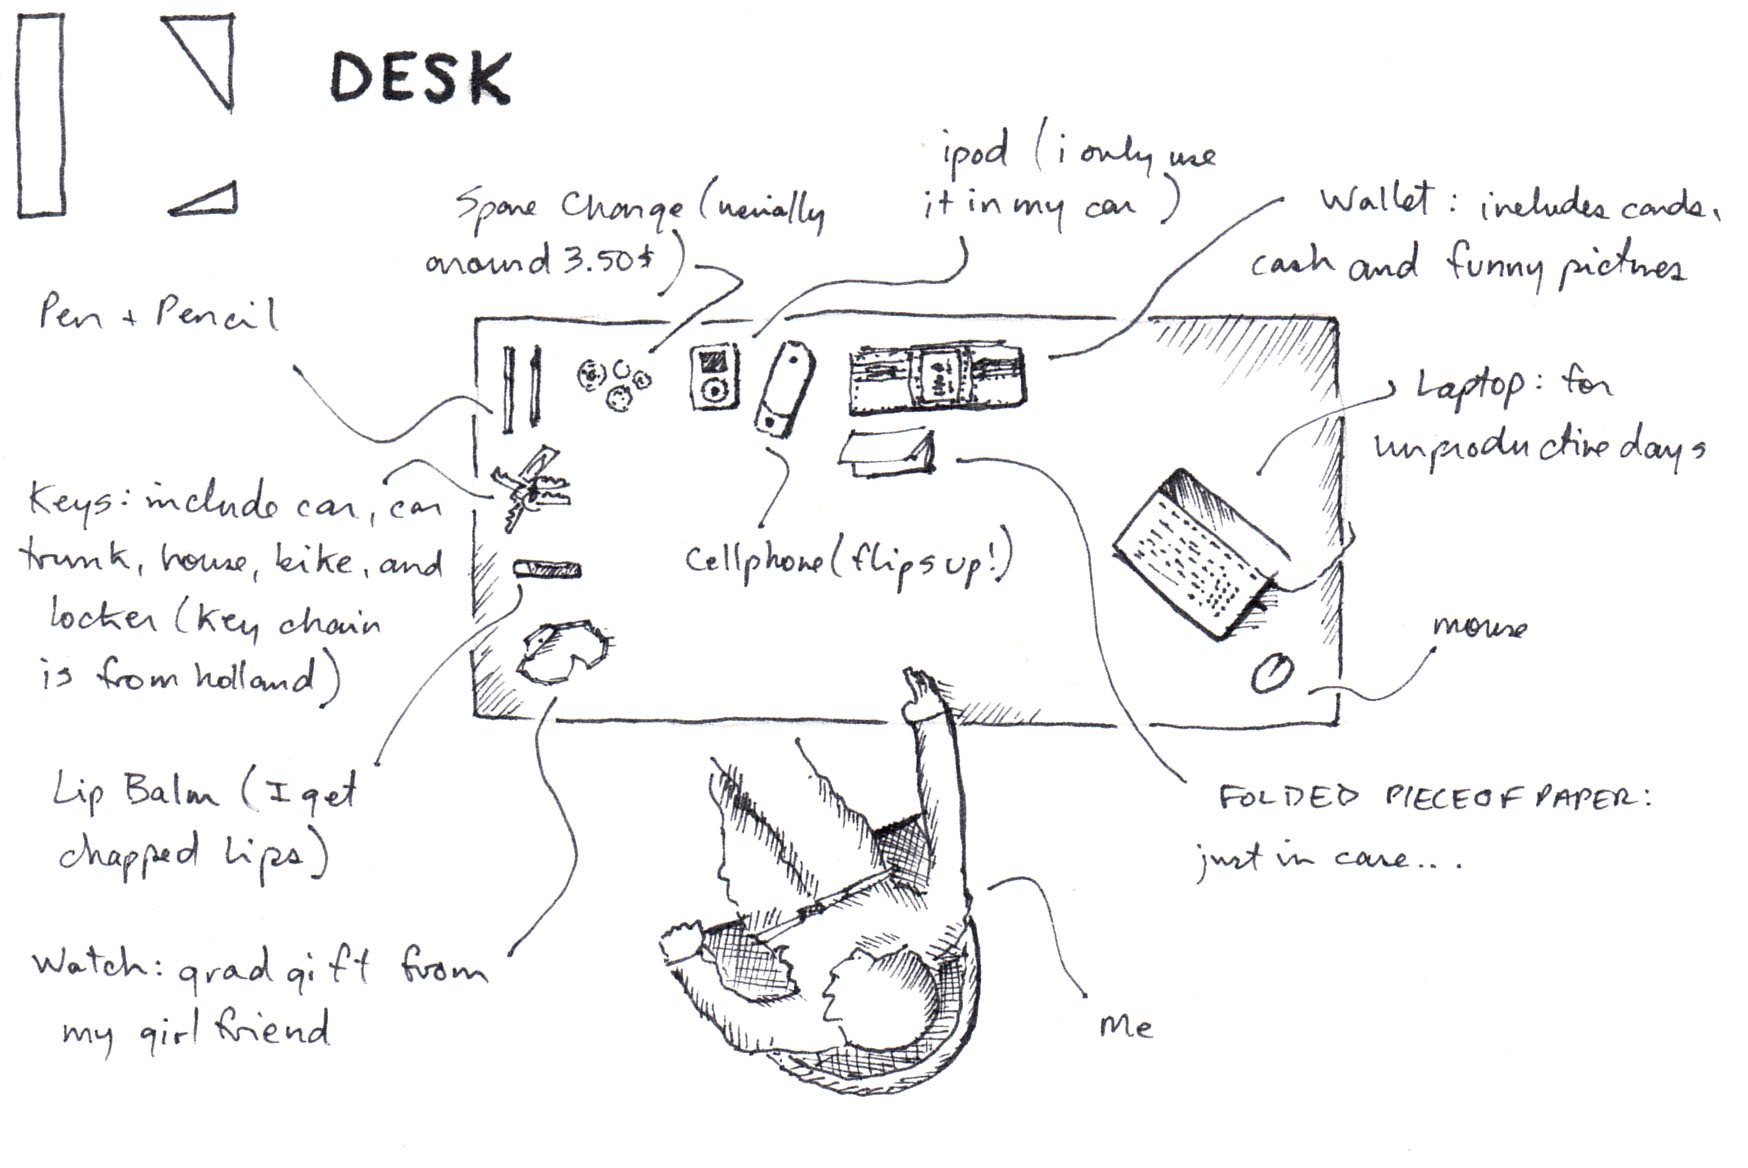 DESK
ipod (i only use
it in my car)
Spare Change (usually
around 3.50$)
Wallet: includes cards,
cash and funny pictures
Pen + Pencil
Laptop: for
unproductive days
Keys: include car, car
trunk, house, bike, and
locker (key chain
is from holland)
cellphone (flips up!)
mouse
Lip Balm (I get
chapped lips)
FOLDED PIECE OF PAPER:
just in case...
Watch: grad gift from
my girlfriend
Me